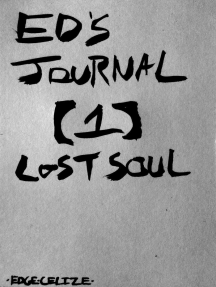 ED'S
JOURNAL
[1]
LOST SOUL
·EDGE·CELIZE·